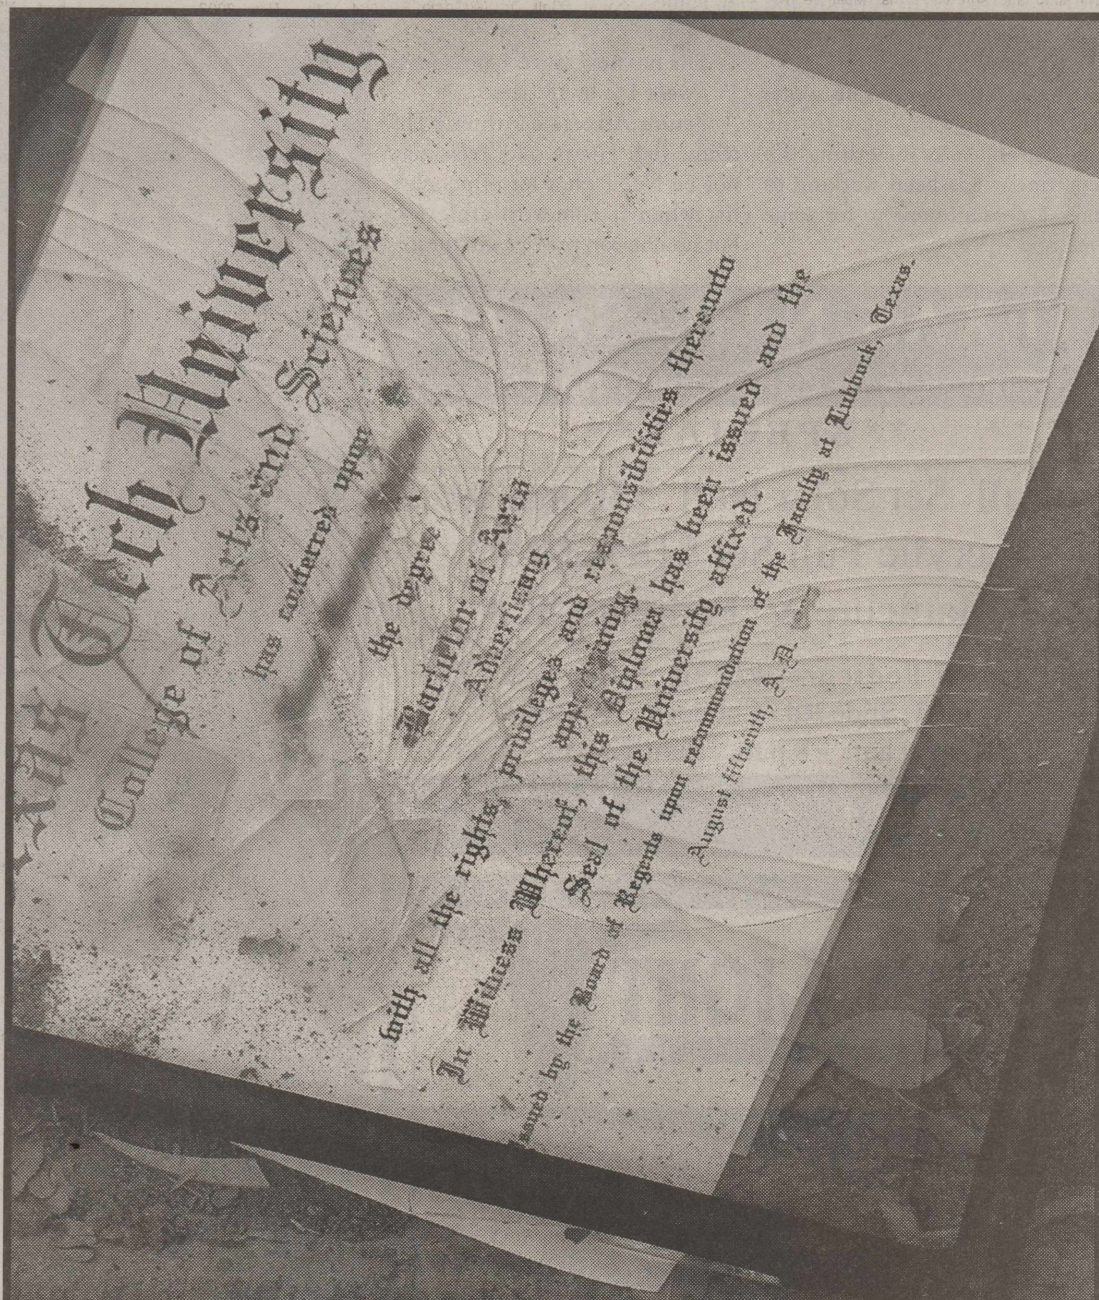 xas Tech University
College of Arts and Sciences
has conferred upon
the degree
Bachelor of Arts
Advertising
with all the rights, privileges and responsibilities thereunto
appertaining.
In Witness Whereof, this Diploma has been issued and the
Seal of the University affixed.
Issued by the Board of Regents upon recommendation of the Faculty at Lubbock, Texas.
August fifteenth, A.D.